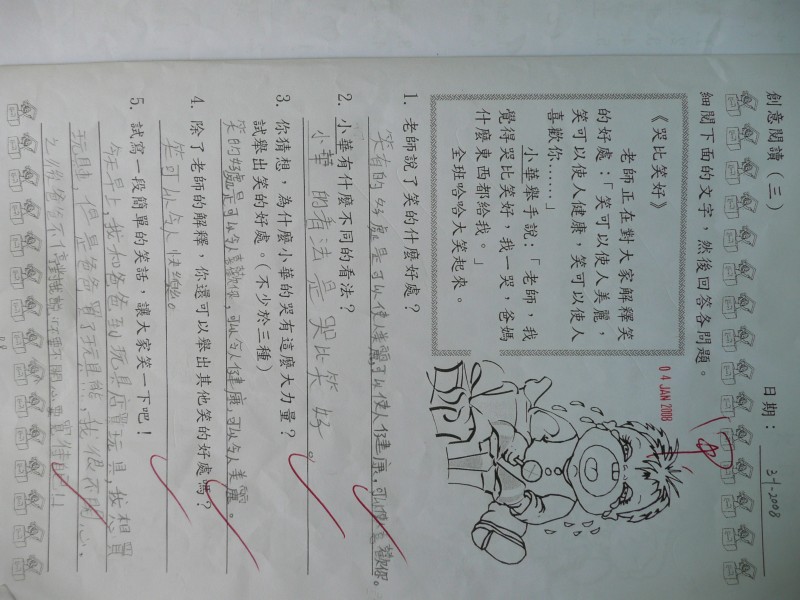 日期：3-1-2008
創意閱讀（三）
細閱下面的文字，然後回答各問題。
04 JAN 2008
《哭比笑好》
老師正在對大家解釋笑
的好處：「笑可以使人美麗，
笑可以使人健康，笑可以使人
喜歡你……」
小華舉手說：「老師，我
覺得哭比笑好，我一哭，爸媽
什麼東西都給我。」
全班哈哈大笑起來。
1. 老師說了笑的什麼好處？
笑有的好處是可以使人美麗，可以使人健康，可以使人喜歡你。
2. 小華有什麼不同的看法？
小華的看法是哭比笑好。
3. 你猜想，為什麼小華的哭有這麼大力量？
試舉出笑的好處。（不少於三種）
笑的好處是可以令人喜歡你，可以令人健康，可以令人美麗。
4. 除了老師的解釋，你還可以舉出其他笑的好處嗎？
笑可以令人快
5. 試寫一段簡單的笑話，讓大家笑一下吧！
年早上，我和爸爸到玩具店買玩具，我想買
玩具，但是爸爸買了玩具熊，我很不開心，